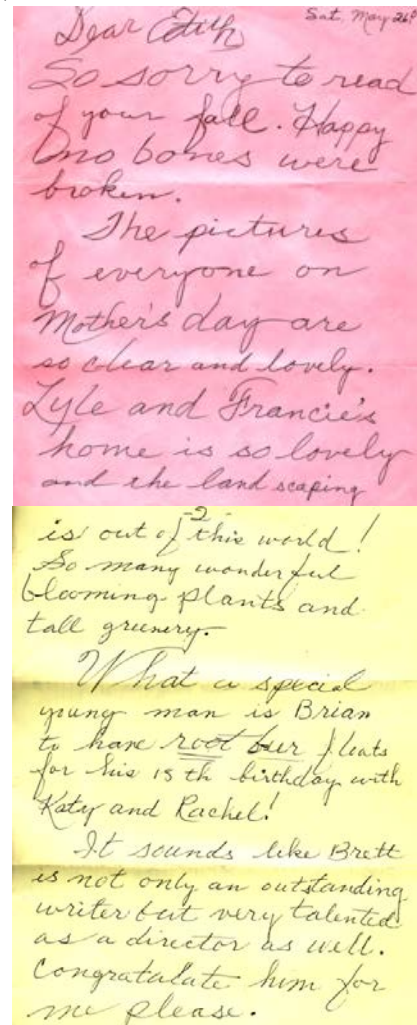 Sat, May 26th
Dear Edith
So sorry to read
of your fall. Happy
no bones were
broken.
The pictures
of everyone on
Mother's day are
so clear and lovely.
Lyle and Francie's
home is so lovely
and the land scaping
-2-
is out of this world!
So many wonderful
blooming plants and
tall greenery.
What a special
young man is Brian
to have root beer floats
for his 15th birthday with
Katy and Rachel!
It sounds like Brett
is not only an outstanding
writer but very talented
as a director as well.
Congratalate him for
me please.